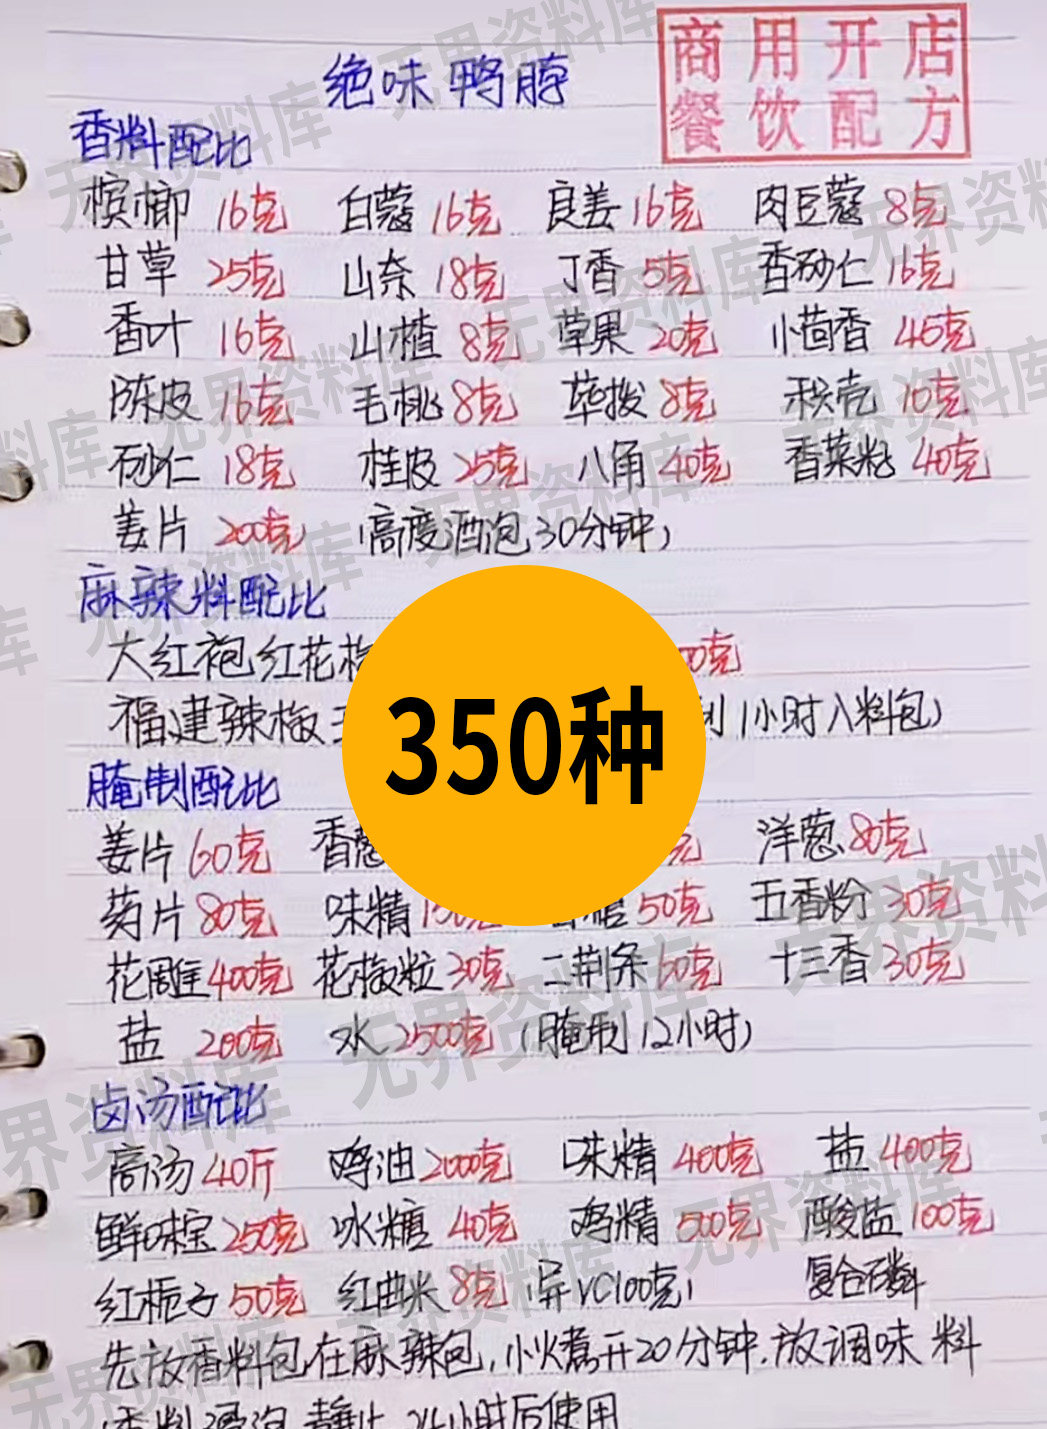 商用开店
餐饮配方
绝味鸭脖
香料配比
槟榔 16克 白蔻 16克 良姜 16克 肉豆蔻 8克
甘草 25克 山奈 18克 丁香 5克 香砂仁 16克
香叶 16克 山楂 8克 草果 20克 小茴香 45克
陈皮 16克 毛桃 8克 荜拨 8克 枳壳 10克
砂仁 18克 桂皮 25克 八角 40克 香菜籽 40克
姜片 200克 (高度酒泡30分钟)
麻辣料配比
大红袍红花椒
福建辣椒王 1小时入料包)
350种
腌制配比
姜片 60克 香葱 克 洋葱 80克
药片 80克 味精 糖 50克 五香粉 30克
花雕 400克 花椒粒 30克 二荆条 60克 十三香 30克
盐 200克 水 2500克 (腌制12小时)
卤汤配比
高汤 40斤 鸡油 2000克 味精 400克 盐 400克
鲜味宝 250克 冰糖 40克 鸡精 500克 酸盐 100克
红栀子 50克 红曲米 8克 (异VC100克) 复合磷
先放香料包在麻辣包,小火煮开20分钟.放调味料
香料浸泡静止 24小时后使用
无界资料库